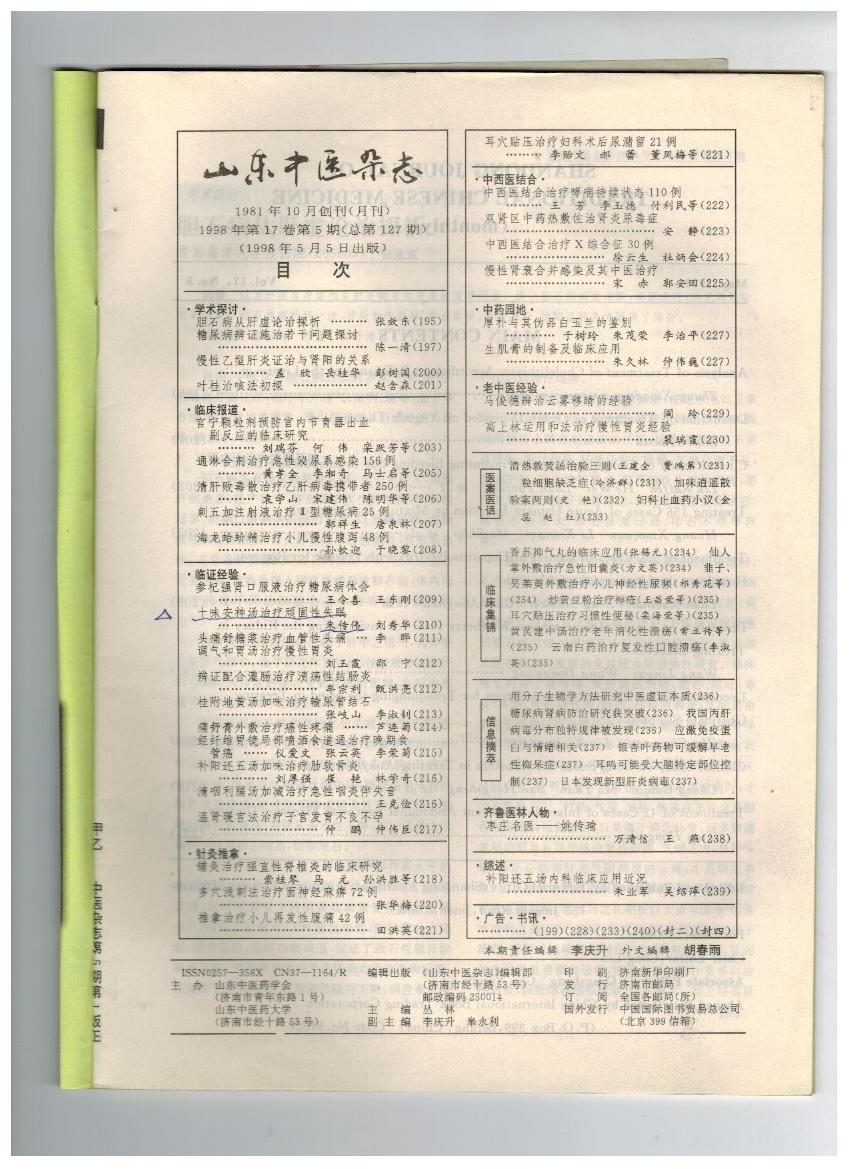 山东中医杂志
1981年10月创刊(月刊)
1998年第17卷第5期(总第127期)
(1998年5月5日出版)
目 次
·学术探讨·
胆石病从肝虚论治探析 ……… 张效东(195)
糖尿病辨证施治若干问题探讨
……………… 陈一清(197)
慢性乙型肝炎证治与肾阳的关系
……… 孟 欣 岳桂华 彭树国(200)
叶桂治咳法初探 ……………… 赵含森(201)
·临床报道·
宫宁颗粒剂预防宫内节育器出血
副反应的临床研究
……… 刘瑞芬 何 伟 栾跃芳等(203)
通淋合剂治疗急性泌尿系感染156例
……… 黄孝全 李湘奇 马士启等(205)
清肝败毒散治疗乙肝病毒携带者250例
……… 袁学山 宋建伟 陈明华等(206)
刺五加注射液治疗Ⅱ型糖尿病25例
……………… 郭祥生 唐泉林(207)
海龙蛤蚧精治疗小儿慢性腹泻48例
……………… 孙钦迎 于晓黎(208)
·临证经验·
参杞强肾口服液治疗糖尿病体会
……………… 王令喜 王东刚(209)
十味安神汤治疗顽固性失眠
……………… 朱传伟 刘秀华(210)
头痛舒糖浆治疗血管性头痛 … 李 晔(211)
调气和胃汤治疗慢性胃炎
……………… 刘玉霞 邵 宁(212)
辨证配合灌肠治疗溃疡性结肠炎
……………… 牟宗利 甄洪亮(212)
桂附地黄汤加味治疗输尿管结石
……………… 张岐山 李淑钊(213)
痛舒膏外敷治疗癌性疼痛 …… 芦连菊(214)
经纤维胃镜局部喷洒食道通治疗晚期食
管癌 …… 仪爱文 张云英 李荣菊(215)
补阳还五汤加味治疗肋软骨炎
……… 刘厚强 崔 艳 林学奇(216)
清咽利膈汤加减治疗急性咽炎伴失音
……………… 王克俭(216)
温肾暖宫法治疗子宫发育不良不孕
……………… 仲 鹏 仲伟臣(217)
·针灸推拿·
铺灸治疗强直性脊椎炎的临床研究
……… 崇桂琴 马 元 孙洪胜等(218)
多穴浅刺法治疗面神经麻痹72例
……………… 张华梅(220)
推拿治疗小儿再发性腹痛42例
……………… 田洪英(221)
耳穴贴压治疗妇科术后尿潴留21例
……… 李贻文 郝 蕾 董凤梅等(221)
·中西医结合·
中西医结合治疗哮喘持续状态110例
……… 王 芳 李玉德 付利民等(222)
双肾区中药热敷佐治肾炎尿毒症
……………… 安 静(223)
中西医结合治疗X综合征30例
……………… 徐云生 杜炳会(224)
慢性肾衰合并感染及其中医治疗
……………… 宋 赤 郭安田(225)
·中药园地·
厚朴与其伪品白玉兰的鉴别
……… 于树玲 朱茂荣 李治平(227)
生肌膏的制备及临床应用
……………… 朱久林 仲伟巍(227)
·老中医经验·
马俊德辨治云翳移睛的经验
……………… 闻 玲(229)
高上林运用和法治疗慢性胃炎经验
……………… 裴瑞霞(230)
医案医话
清热救焚汤治验三则(王建全 贾鸿第)(231)
粒细胞缺乏症(冷济群)(231) 加味逍遥散
验案两则(史 艳)(232) 妇科止血药小议(金
蕊 赵 红)(233)
临床集锦
香苏抑气丸的临床应用(张锡元)(234) 仙人
掌外敷治疗急性泪囊炎(方文英)(234) 韭子、
吴茱萸外敷治疗小儿神经性尿频(祁秀花等)
(234) 炒黄豆粉治疗褥疮(王西荣等)(235)
耳穴贴压治疗习惯性便秘(栾海荣等)(235)
黄芪建中汤治疗老年消化性溃疡(常立传等)
(235) 云南白药治疗复发性口腔溃疡(李淑
英)(235)
信息摘萃
用分子生物学方法研究中医虚证本质(236)
糖尿病肾病防治研究获突破(236) 我国丙肝
病毒分布独特规律被发现(236) 应激免疫蛋
白与情绪相关(237) 银杏叶药物可缓解早老
性痴呆症(237) 耳鸣可能受大脑特定部位控
制(237) 日本发现新型肝炎病毒(237)
·齐鲁医林人物·
枣庄名医——姚传瑜
……………… 万清信 王 燕(238)
·综述·
补阳还五汤内科临床应用近况
……………… 朱业军 吴绍萍(239)
·广告·书讯·
………… (199)(228)(233)(240)(封二)(封四)
本期责任编辑 李庆升 外文编辑 胡春雨
ISSN0257—358X CN37—1164/R 编辑出版 《山东中医杂志》编辑部 印 刷 济南新华印刷厂
主 办 山东中医药学会 (济南市经十路53号) 发 行 济南市邮局
(济南市青年东路1号) 邮政编码250014 订 阅 全国各邮局(所)
山东中医药大学 主 编 丛 林 国外发行 中国国际图书贸易总公司
(济南市经十路53号) 副主编 李庆升 单永利 (北京399信箱)